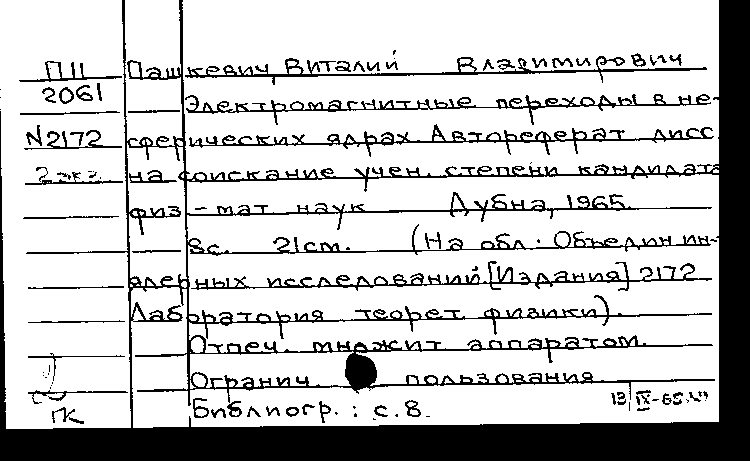 П11 Пашкевич, Виталий Владимирович
2061 Электромагнитные переходы в не-
N2172 сферических ядрах. Автореферат дисс.
2 экз. на соискание учен. степени кандидата
физ-мат. наук Дубна, 1965.
8с. 21см. (На обл.: Объедин ин-
ядерных исследований. [Издания] 2172
Лаборатория теорет. физики).
Отпеч. множит аппаратом.
Огранич. пользования
Библиогр.: с. 8.
ГК